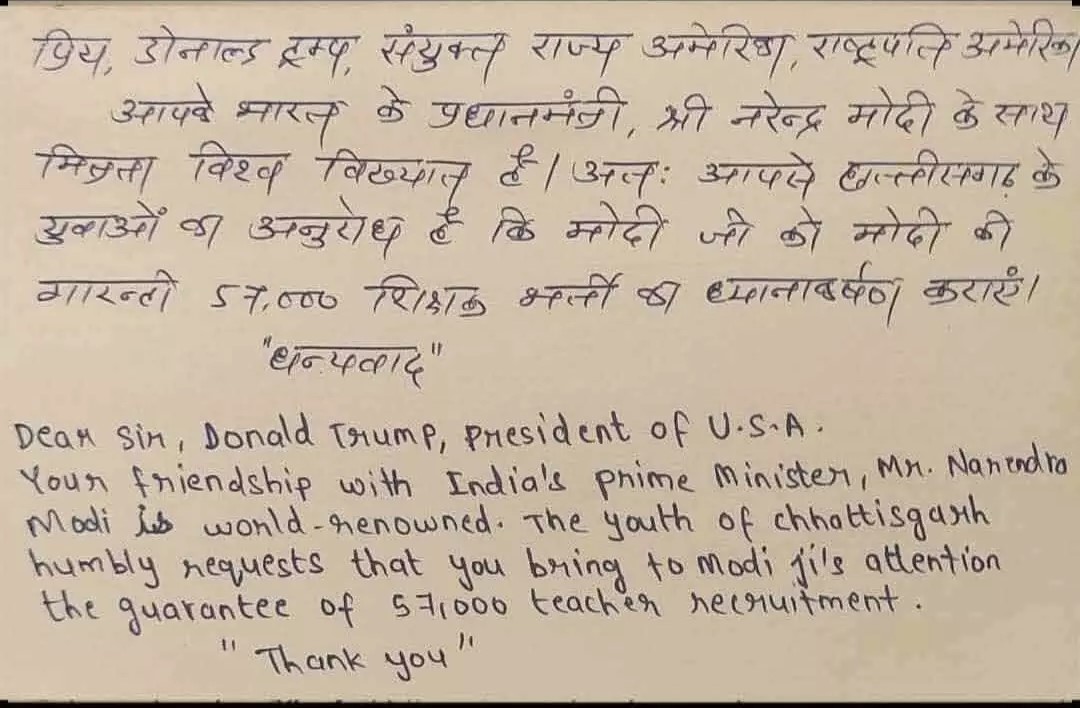 प्रिय, डोनाल्ड ट्रम्प, संयुक्त राज्य अमेरिका, राष्ट्रपति अमेरिका
आपके भारत के प्रधानमंत्री, श्री नरेन्द्र मोदी के साथ
मित्रता विश्व विख्यात है। अतः आपसे छत्तीसगढ़ के
युवाओं का अनुरोध है कि मोदी जी को मोदी की
गारन्टी 57,000 शिक्षक भर्ती का ध्यानाकर्षण कराएं।
"धन्यवाद"
Dear Sir, Donald Trump, president of U.S.A.
Your friendship with India's prime Minister, Mr. Narendra
Modi is world-renowned. The youth of chhattisgarh
humbly requests that you bring to Modi ji's attention
the guarantee of 57,000 teacher recruitment.
"Thank you"